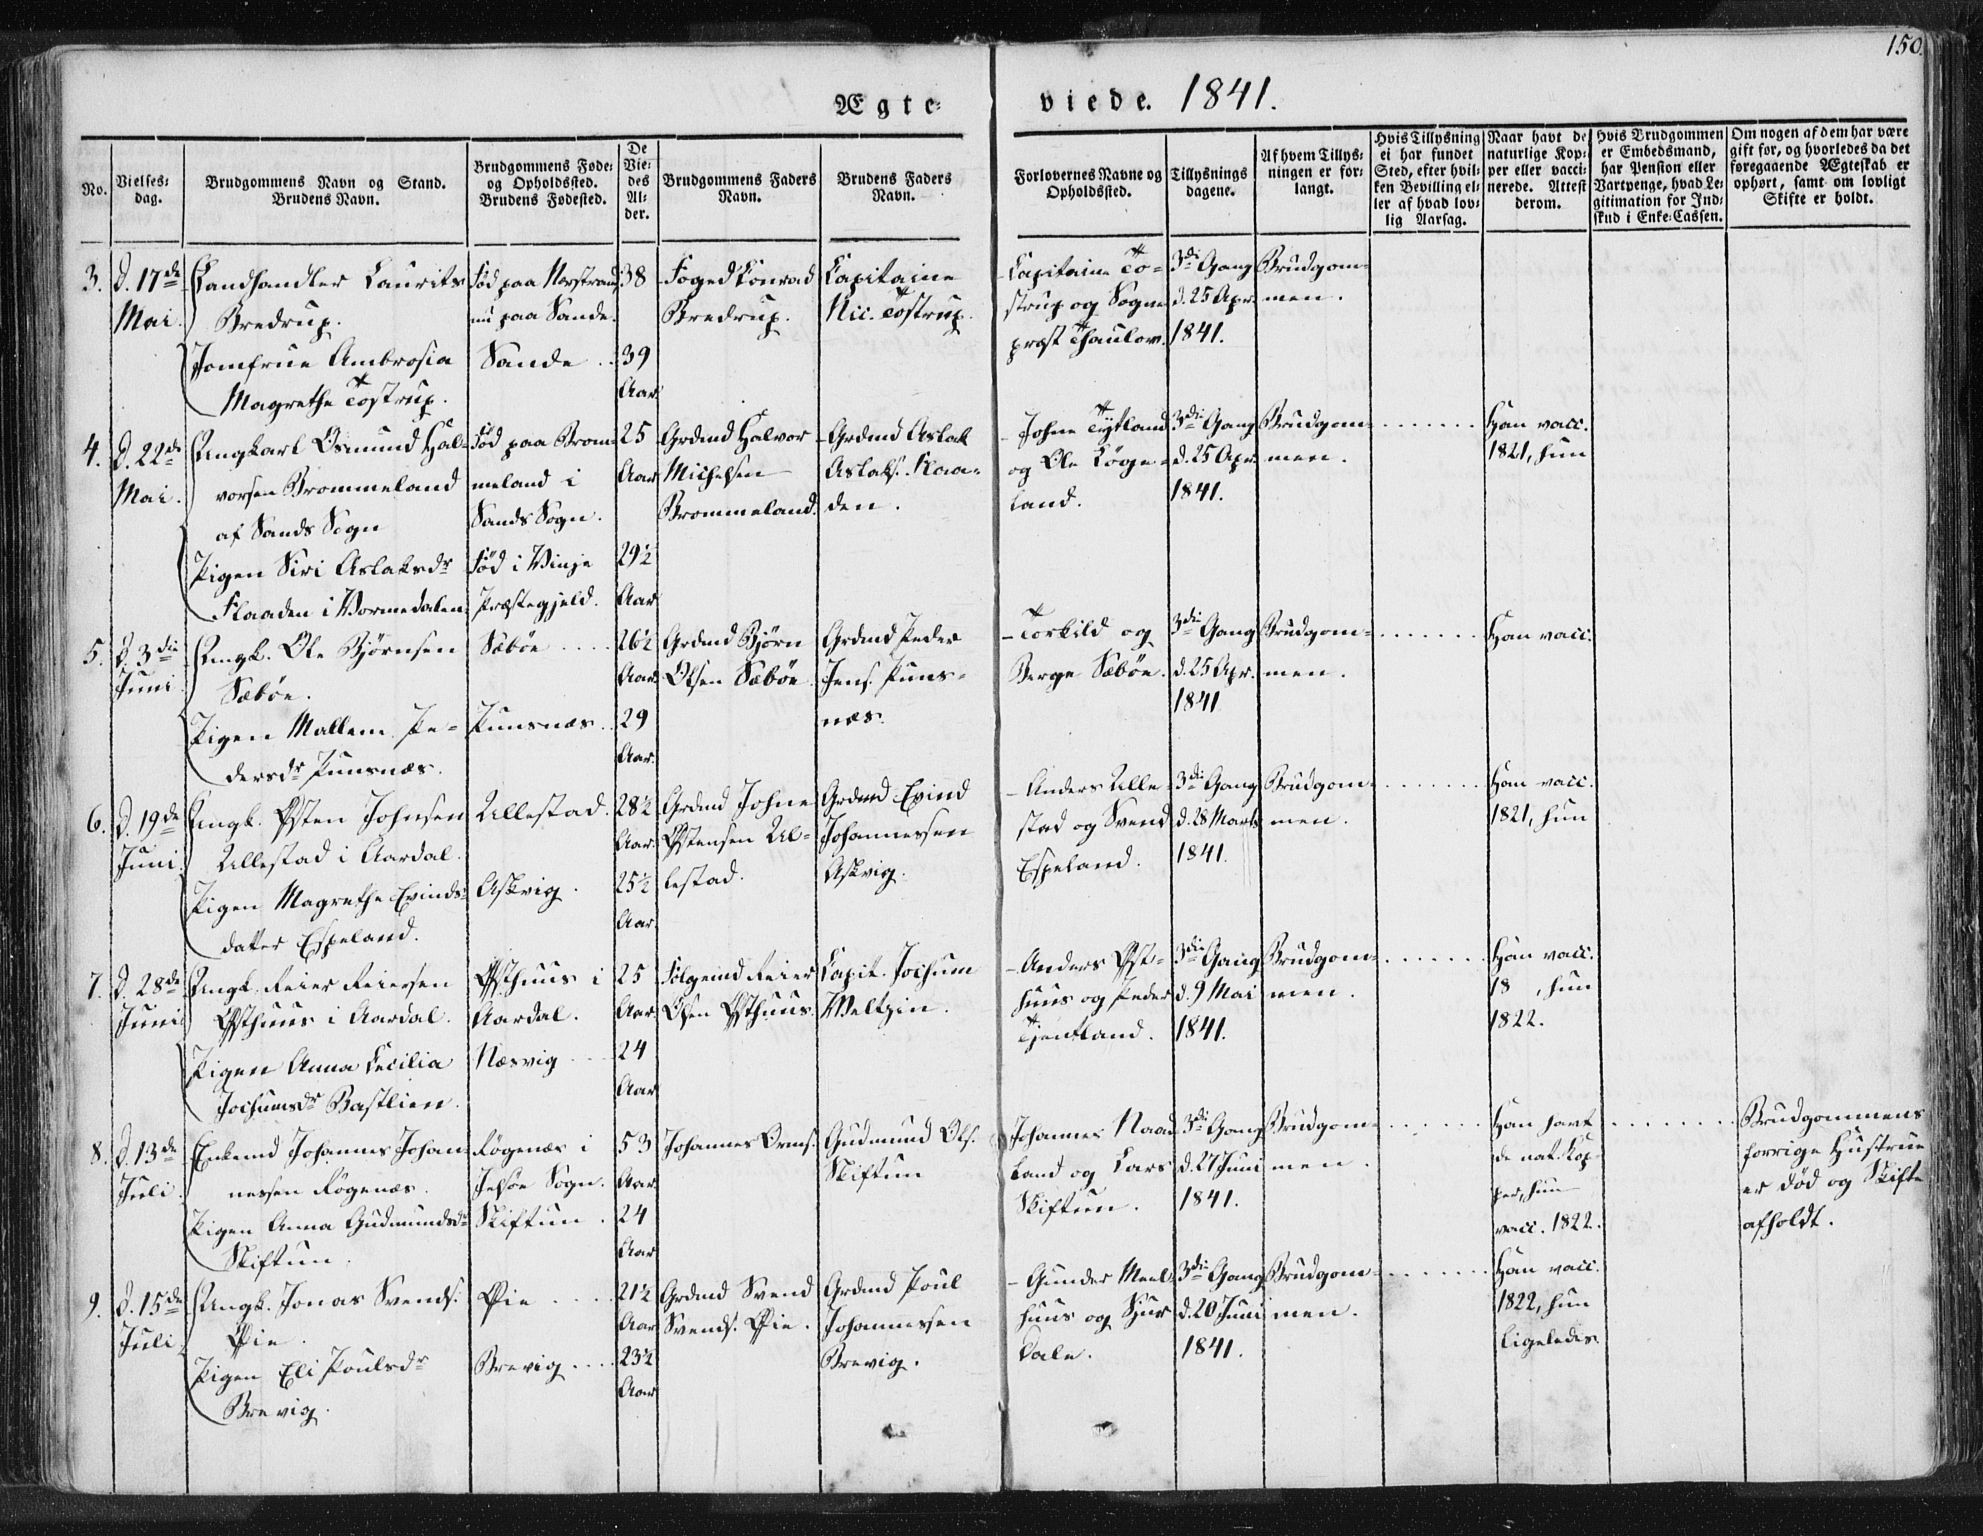 150.
Ægte-
viede. 1841.
No.
Vielses-
dag.
Brudgommens Navn og Stand.
Brudens Navn.
Brudgommens Føde-
og Opholdssted.
Brudens Fødested.
De
Vie-
des
Al-
der.
Brudgommens Faders
Navn.
Brudens Faders
Navn.
Forlovernes Navne og
Opholdssted.
Tillysnings
dagene.
Af hvem Tillys-
ningen er for-
langt.
Hvis Tillysning
ei har fundet
Sted, efter hvil-
ken Bevilling el-
ler af hvad lov-
lig Aarsag.
Naar havt de
naturlige Kop-
per eller vacci-
nerede. Attest
derom.
Hvis Brudgommen
er Embedsmand,
har Pension eller
Vartpenge, hvad Le-
gitimation for Ind-
skud i Enke-Cassen.
Om nogen af dem har være
gift før, og hvorledes da det
foregaaende Ægteskab er
ophørt, samt om lovligt
Skifte er holdt.
3.
d. 17de
Mai.
Landhandler Laurits
Bredrup.
Jomfrue Ambrosia
Magrethe Tostrup.
Fød paa
nu paa Sande.
Sande ..
38
39
Aar
Foged Conrad
Bredrup.
Capitaine
Nic. Tostrup.
Capitaine To-
strup og Sogne
præst Thaulow.
3die Gang
d. 25 Apr.
1841.
Brudgom-
men.
4.
d. 22de
Mai.
Ungkarl Osmund Hal-
vorsen Brommeland
af Sands Sogn
Pigen Siri Aslaksdr
Flaaden i Vormedalen.
Fød paa Brom-
meland i
Sands Sogn.
Fød i Vinje
Præstegjeld.
25
Aar
29½
Aar
Grdmd Halvor
Michelsen
Brommeland.
Grdmd Aslak
Aslaks. Flaa-
den.
Johne Tytland
og Ole Løge-
land.
3die Gang
d. 25 Apr.
1841.
Brudgom-
men.
Han vacc.
1821, hun
5.
d. 3die
Juni
Ungk. Ole Bjørnsen
Sæbøe.
Pigen Mallem Pe-
dersdr Punsnæs.
Sæbøe ....
Punsnæs ..
26½
Aar
29
Aar.
Grdmd Bjørn
Olsen Sæbøe
Grdmd Peder
Jens. Puns-
næs.
Torkild og
Berge Sæbøe.
3die Gang
d. 25 Apr.
1841
Brudgom-
men.
Han vacc.
6.
d. 19de
Juni.
Ungk. Østen Johnsen
Ullestad i Aardal.
Pigen Magrethe Evinds-
datter Espeland.
Ullestad.
Askvig.
28½
Aar.
25½
Aar.
Grdmd Johne
Østensen Ul-
lestad.
Grdmd Evind
Johannessen
Askvig.
Anders Ulle-
stad og Svend
Espeland.
3die Gang
d. 28 Marts
1841.
Brudgom-
men.
Han vacc.
1821, hun
7.
d. 28de
Juni
Ungk. Reier Reiersen
Østhuus i Aardal.
Pigen Anna Cecilia
Jochumsdr Bastlien.
Østhuus i
Aardal.
Næsvig ....
25
Aar.
24
Aar
Reier
Olsen Østhuus.
Capit. Jochum
Weltzin.
Anders Øst-
huus og Peder
Tjentland.
3die Gang
d. 9 Mai
1841.
Brudgom-
men.
Han vacc.
18 , hun
1822.
8.
d. 13de
Juli
Enkemd Johannes Johan-
nessen Røgenæs.
Pigen Anna Gudmundsdr
Skiftun.
Røgenæs i
Jelsøe Sogn.
Skiftun.
53
Aar.
24
Aar
Johannes Orms.
Gudmund Ols.
Skiftun
Johannes Naad
land og Lars
Skiftun.
3die Gang
d. 27 Juni
1841.
Brudgom-
men.
Han havt
de nat. Kop-
per, hun
vacc. 1822.
Brudgommens
forrige Hustrue
er død og Skifte
afholdt.
9.
d. 15de
Juli
Ungk. Jonas Svends.
Øie.
Pigen Eli Poulsdr
Brevig.
Øie ....
Brevig ....
21½
Aar
23½
Aar
Grdmd Svend
Svends. Øie.
Grdmd Poul
Johannessen
Brevig.
Gunder Meel-
huus og Sjur
Dale.
3die Gang
d. 20 Juni
1841.
Brudgom-
men.
Han vacc.
1822, hun
ligeledes.